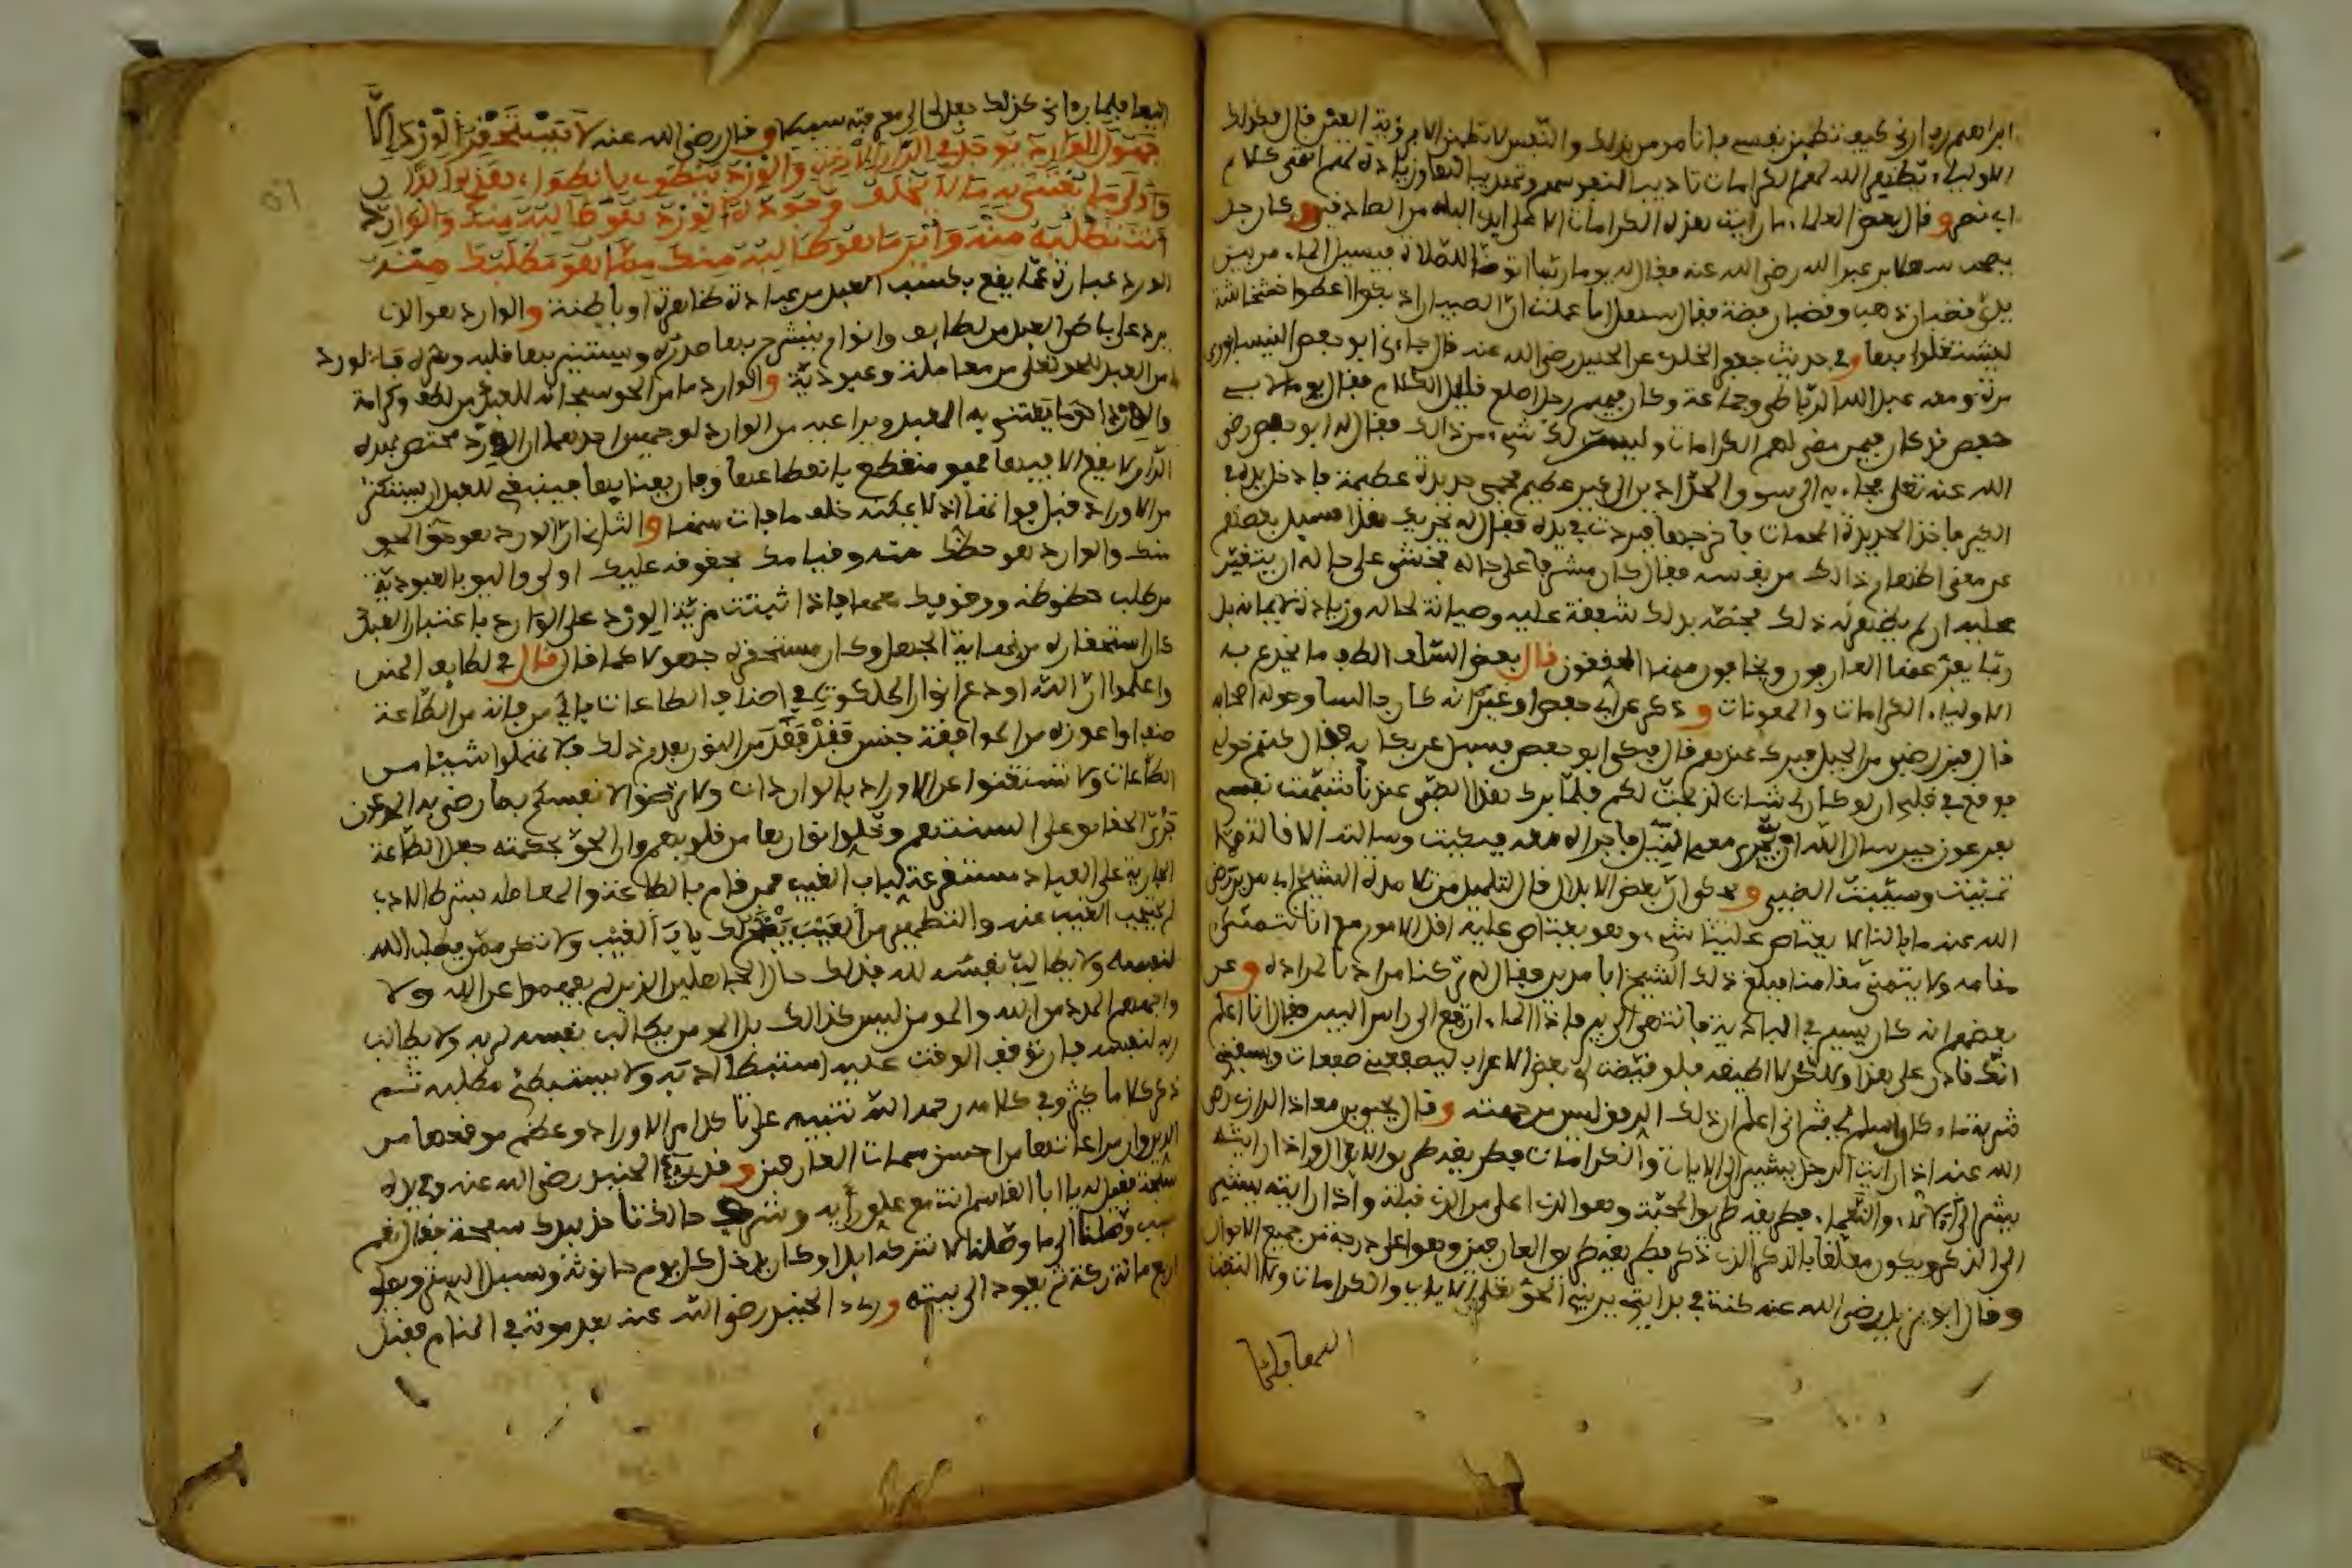 ابراهيم رب ارني كيف تطمين نفسي فانا مومن بذلك والنفس لا تطمين الا برؤية العين قال فكذلك
الاوليا يظهر الله لهم الكرامات تاديبا لنفوسهم وتهذيبا لها وزيادة لهم انتهى كلام
ابي نصر وقال بعض العلما ما رايت هذه الكرامات الا على ايدي البله من الصادقين وكان رجل
يصحب سهل بن عبد الله رضي الله عنه فقال له يوما ربما اتوضأ للصلاة فيسيل الما من بين
يدي قضبان ذهب وقضبان فضة فقال سهل اما علمت ان الصبيان اذ بكوا اعطوا خشخاشة
ليشتغلوا بها وفي حديث جعفر الخلدي عن الجنيد رضي الله عنه قال جاءني ابو حفص النيسابوري
مرة ومعه عبد الله الرباطي وجماعة وكان فيهم رجل اصلع قليل الكلام فقال يوما لابي
حفص قد كان فيمن مضى لهم الكرامات وليست لك شيء من ذالك فقال له ابو حفص رضي
الله عنه تعلى فجاء به الى سوق الحدادين الى كير عظيم محمى حديدة عظيمة فادخل يده في
الكير فاخذ الحديدة المحمات فاخرجها فبردت في يده فقال له يجزيك هذا فسيل بعضهم
عن معنى اظهار ذالك من نفسه فقال كان مشرفا على حاله فخشي على حاله ان يتغير
عليه ان لم يظهر له ذلك فخصه بذلك شفقة عليه وصيانة لحاله وزيادة لايمانه بل
ربما يفر عنها العارفون ويخافون منها المحققون قال بعض السلف الطف ما يخدع به
الاوليا الكرامات والمعونات وذكر عن ابي حفص او غيره انه كان جالسا وحوله اصحابه
قال فنزل ضبي من الجبل فبرك عندهم قال فبكى ابو حفص فسيل عن بكايه فقال كنتم حولي
فوقع في قلبي ان لو كان لي شاة لذبحت لكم فلما برك هذا الضبي عندنا شبهت نفسي
بفرعون حين سال الله ان يجري معه النيل فاجراه معه فبكيت وسالته الاقالة مما
تمنيت وسيبت الضبي وحكي ان بعض الابدال قال لتلميذ من تلامذة الشيخ ابي مدين رضي
الله عنه ما بالنا لا يعتاص علينا شيء وهو يعتاص عليه اقل الامور مع انا نتمنى
مقامه ولا يتمنى مقامنا فبلغ ذلك الشيخ ابا مدين فقال له تركنا مرادنا لمراده وعن
بعضهم انه كان يسير في البادية فانتهى الى بير فاذا الماء ارتفع الى راس البير فقال انا اعلم
انك قادر على هذا ولكن لا اطيقه فلو قيضت لي بعض الاعراب ليصفعني صفعات ويسقيني
شربة ماء كان اسلم لي ثم اني اعلم ان ذلك الرفق ليس من جهته وقال يحيى بن معاذ الرازي رضي
الله عنه اذا رايت الرجل يشير الى الايات والكرامات فطريقه طريق الابدال واذا رايته
يشير الى الآلاء والنعماء فطريقه طريق المحبة وهو الذي اعلى من الذي قبله واذا رايته يشير
الى الذكر ويكون معلقا بالذكر الذي ذكر فطريقه طريق العارفين وهو اعلى درجة من جميع الاحوال
وقال ابو يزيد رضي الله عنه كنت في بدايتي يريني الحق تعلى الايات والكرامات ولا التفت
اليها فلما
اليها فلما رءاني كذلك جعل لي الى معرفته سبيلا وقال رضي الله عنه لا يستحقر الورد الا
جهول الوارد يوجد في الدار الاخرة والورد ينطوي بانطواء هذه الدار
واولى ما يعتنى به ما لا يخلف وجوده الورد هو طالبه منك والوارد
انت تطلبه منه واين ما هو طالبه منك مما هو مطلبك منه
الورد عبارة عما يقع بكسب العبد من عبادة ظاهرة او باطنة والوارد هو الذي
يرد على باطن العبد من لطايف وانوار ينشرح بها صدره ويستنير بها قلبه وسره فالورد
من العبد للحق تعلى من معاملة وعبودية والوارد ما من الحق سبحانه للعبد من لطف وكرامة
والورد احق ما يعتني به العبد ويراعيه من الوارد لوجهين احدهما ان الورد مختص بهذه
الدار ولا يقع الا فيها فهو منقطع بانقطاعها وفان بفنايها فينبغي للعبد ان يستكثر
من الاوراد قبل فواتها اذ لا يمكنه خلف ما فات منها والثاني ان الورد هو حق الحق
منك والوارد هو حظك منه وقيامك بحقوقه عليك اولى واليق بالعبودية
من طلب حظوظه فاذا ثبتت مزية الورد على الوارد باعتبار العبد
كان استحقاره من نهاية الجهل وكان مستحقره جهولا كما قال قال في لطايف المنن
واعلموا ان الله اودع انوار الملكوت في اصناف الطاعات فاي من فاته من الطاعة
صنف او اعوزه من الموافقة جنس فقد فقد من النور بقدر ذلك فلا تهملوا شيئا من
الطاعات ولا تستغنوا عن الاوراد بالواردات ولا ترضوا لانفسكم بما رضي به المدعون
جري الحقايق على السنتهم وخلوا انوارها من قلوبهم وان الحق بحكمته جعل الطاعة
الجارية على العباد مستقرعة لباب الغيب فمن قام بالطاعة والمعاملة بشرط الادب
لم يحتجب الغيب عنه والتطهير من العيب يفتح لك باب الغيب ولا تكن ممن يطلب الله
لنفسه ولا يطالب نفسه لله فذلك حال الجاهلين الذين لم يفهموا عن الله ولا
واجههم المدد من الله والمومن ليس كذالك بل المومن يطالب نفسه لربه ولا يطالب
ربه لنفسه فان توقف الوقت عليه استبطا ادبه ولا يستبطي مطلبه ثم
ذكر كلاما كثيرا وفي كلامه رحمه الله تنبيه على تاكد امر الاوراد وعظم موقعها من
الدين وان مراعاتها من احسن سمات العارفين وقد رءي الجنيد رضي الله عنه وفي يده
سبحة فقيل له يا ابا القاسم انت مع علو رايه وشرف حالك تاخذ بيدك سبحة فقال نعم
سبب وصلنا الى ما وصلنا لا نتركه ابدا وكان يدخل كل يوم حانوته ويسبل الستر ويصلي
اربع ماية ركعة ثم يعود الى بيته ورءي الجنيد رضي الله عنه بعد موته في المنام فقيل